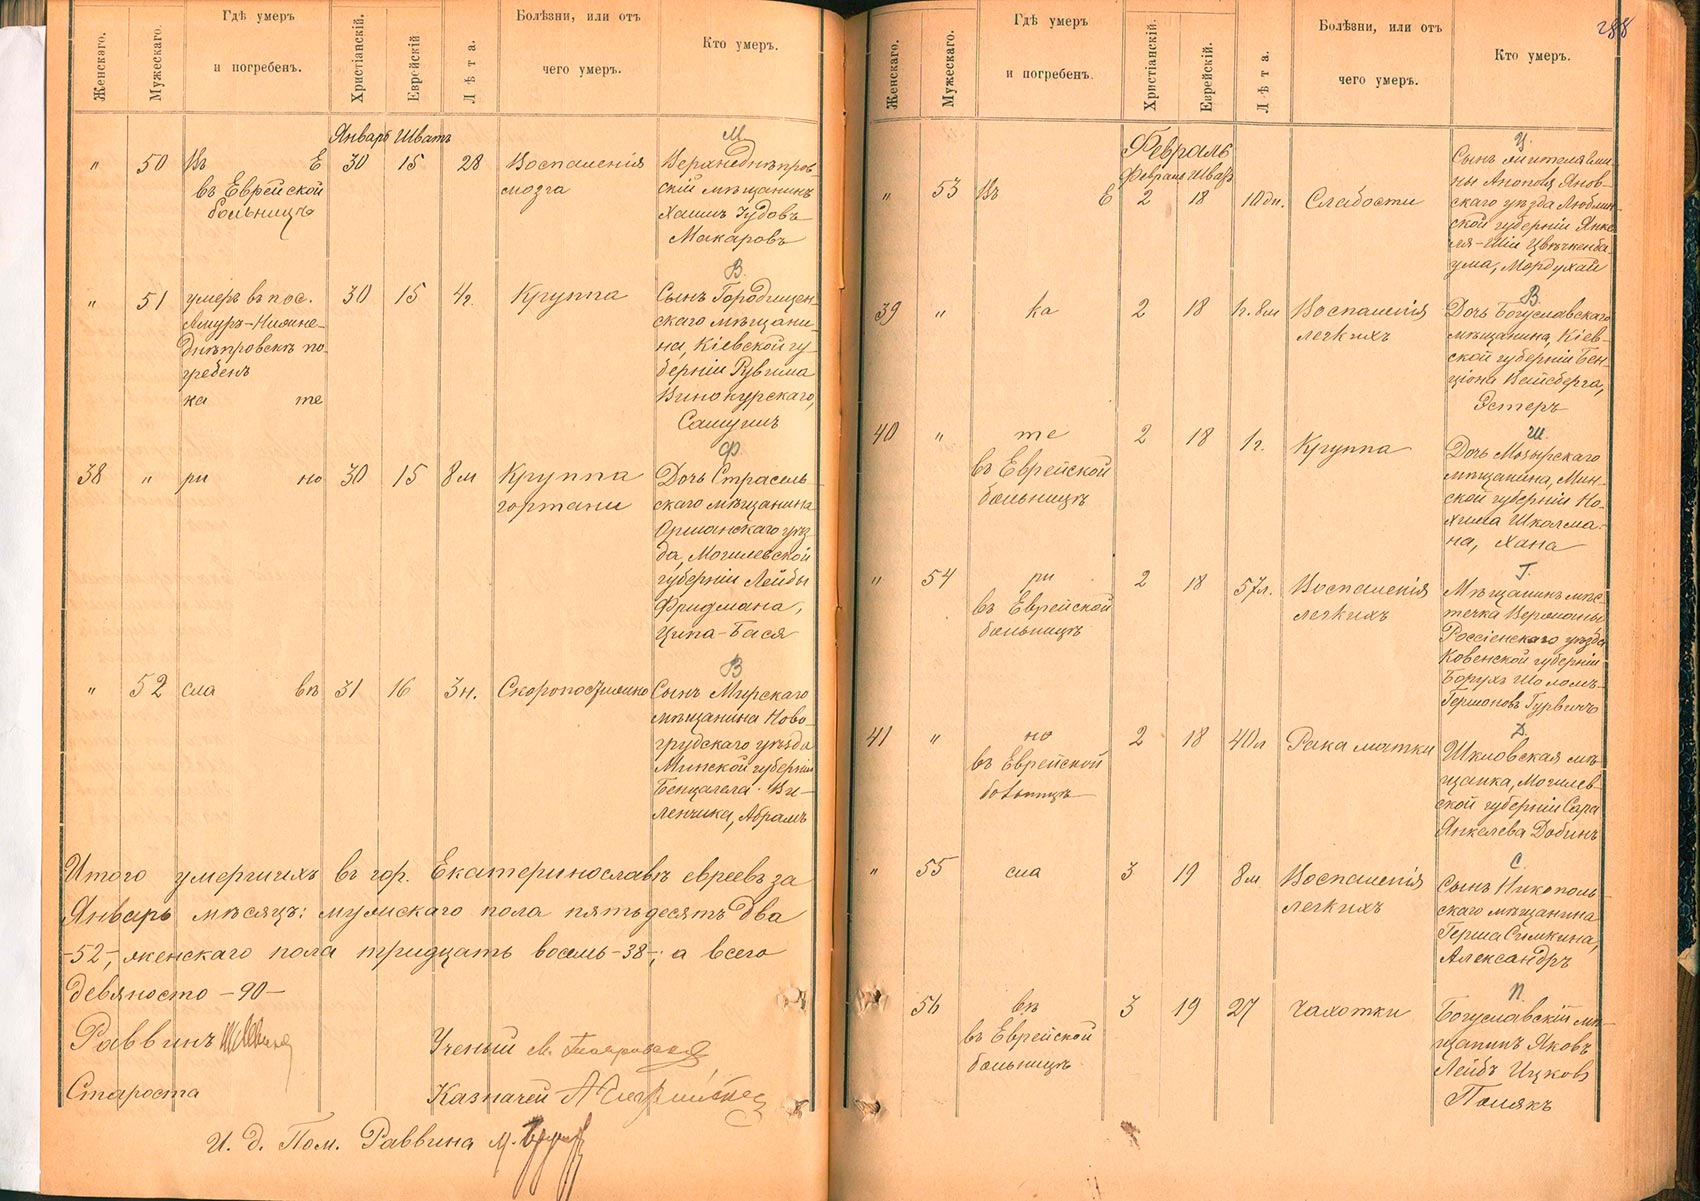 Женскаго.
Мужескаго.
Гдѣ умеръ
и погребенъ.
Христіанскій.
Еврейскій
Лѣта.
Болѣзни, или отъ
чего умеръ.
Кто умеръ.
Январь Шватъ
М
" 50 Въ Е 30 15 28 Воспаленія
въ Еврейской
больницѣ
мозга
Верхнеднѣпров-
скій мѣщанинъ
Хаимъ Іудовъ
Макаровъ
В.
" 51 умеръ въ пос. 30 15 4г. Круппа
Амуръ-Нижне-
днѣпровскѣ по-
гребенъ
ка те
Сынъ Городищен-
скаго мѣщани-
на, Кіевской гу-
берніи Рувима
Винокурскаго,
Самуилъ
Ф.
38 " ри но 30 15 8м Круппа
гортани
Дочь Страсель-
скаго мѣщанина
Оршанскаго уѣз-
да, Могилевской
губерніи Лейбы
Фридмана,
Ципа-Бася
В
" 52 сла вѣ 31 16 3н. Скоропостижно
Сынъ Мирскаго
мѣщанина Ново-
грудскаго уѣзда
Минской губерніи
Бенцалела Ви-
ленчика, Абрамъ
Итого умершихъ въ гор. Екатеринославѣ евреевъ за
Январь мѣсяцъ: мужскаго пола пятьдесятъ два
-52-, женскаго пола тридцать восемь -38-; а всего
девяносто -90-
Раввинъ
Ученый М.
Староста
Казначей А
И. д. Пом. Раввина М.
288
Женскаго.
Мужескаго.
Гдѣ умеръ
и погребенъ.
Христіанскій.
Еврейскій.
Лѣта.
Болѣзни, или отъ
чего умеръ.
Кто умеръ.
Февраль
Февраль Шватъ
Ц.
" 53 Въ Е 2 18 10дн. Слабости
Сынъ жителя гми-
ны Янов-
скаго уѣзда Люблин-
ской губерніи Янке-
ля-Шіи Цвѣкенба-
ума, Мордухай
В.
39 " ка 2 18 1г. 8м Воспаленія
легкихъ
Дочь Богуславскаго
мѣщанина, Кіев-
ской губерніи Бен-
ціона Вейсберга,
Эстеръ
Ш.
40 " те 2 18 1г. Круппа
въ Еврейской
больницѣ
Дочь Мозырскаго
мѣщанина, Мин-
ской губерніи Но-
хима Школма-
на, Хана
Г.
" 54 ри 2 18 57л. Воспаленія
въ Еврейской
больницѣ
легкихъ
Мѣщанинъ мѣс-
течка
Россіенскаго уѣзда
Ковенской губерніи
Борухъ Шоломъ-
Гершоновъ Гурвичъ
Д.
41 " но 2 18 40л Рака матки
въ Еврейской
больницѣ
Шкловская мѣ-
щанка, Могилев-
ской губерніи Сара
Янкелева Добинъ
С.
" 55 сла 3 19 8м Воспаленія
легкихъ
Сынъ Никополь-
скаго мѣщанина
Герша Сымкина,
Александръ
П.
56 вѣ 3 19 27 Чахотки
въ Еврейской
больницѣ
Богуславскій мѣ-
щанинъ Яковъ
Лейбъ Ицков
Полякъ